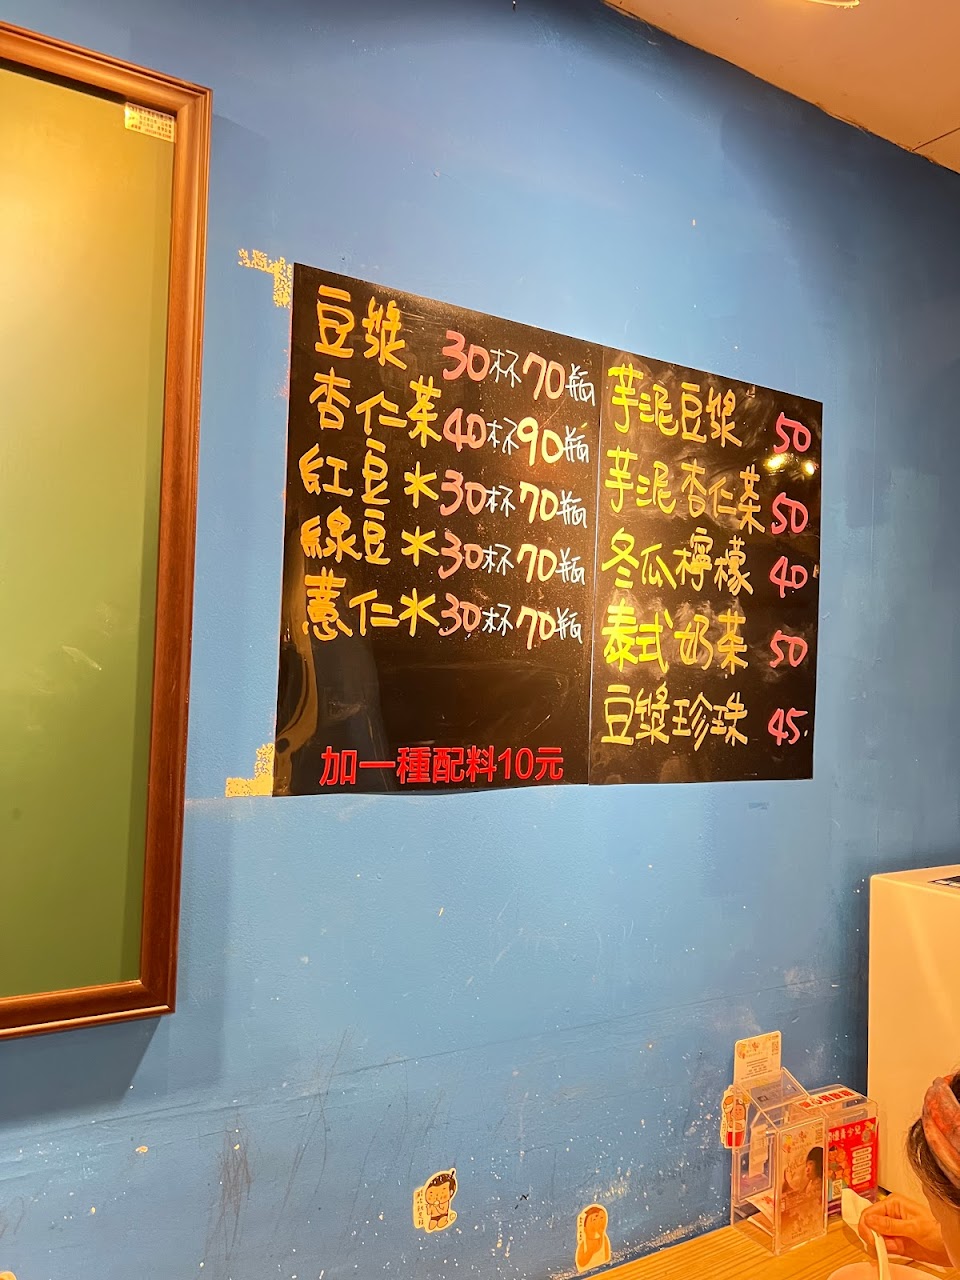 豆漿 30杯 70瓶
杏仁茶 40杯 90瓶
紅豆水 30杯 70瓶
綠豆水 30杯 70瓶
薏仁水 30杯 70瓶
加一種配料10元
芋泥豆漿 50
芋泥杏仁茶 50
冬瓜檸檬 40
泰式奶茶 50
豆漿珍珠 45.